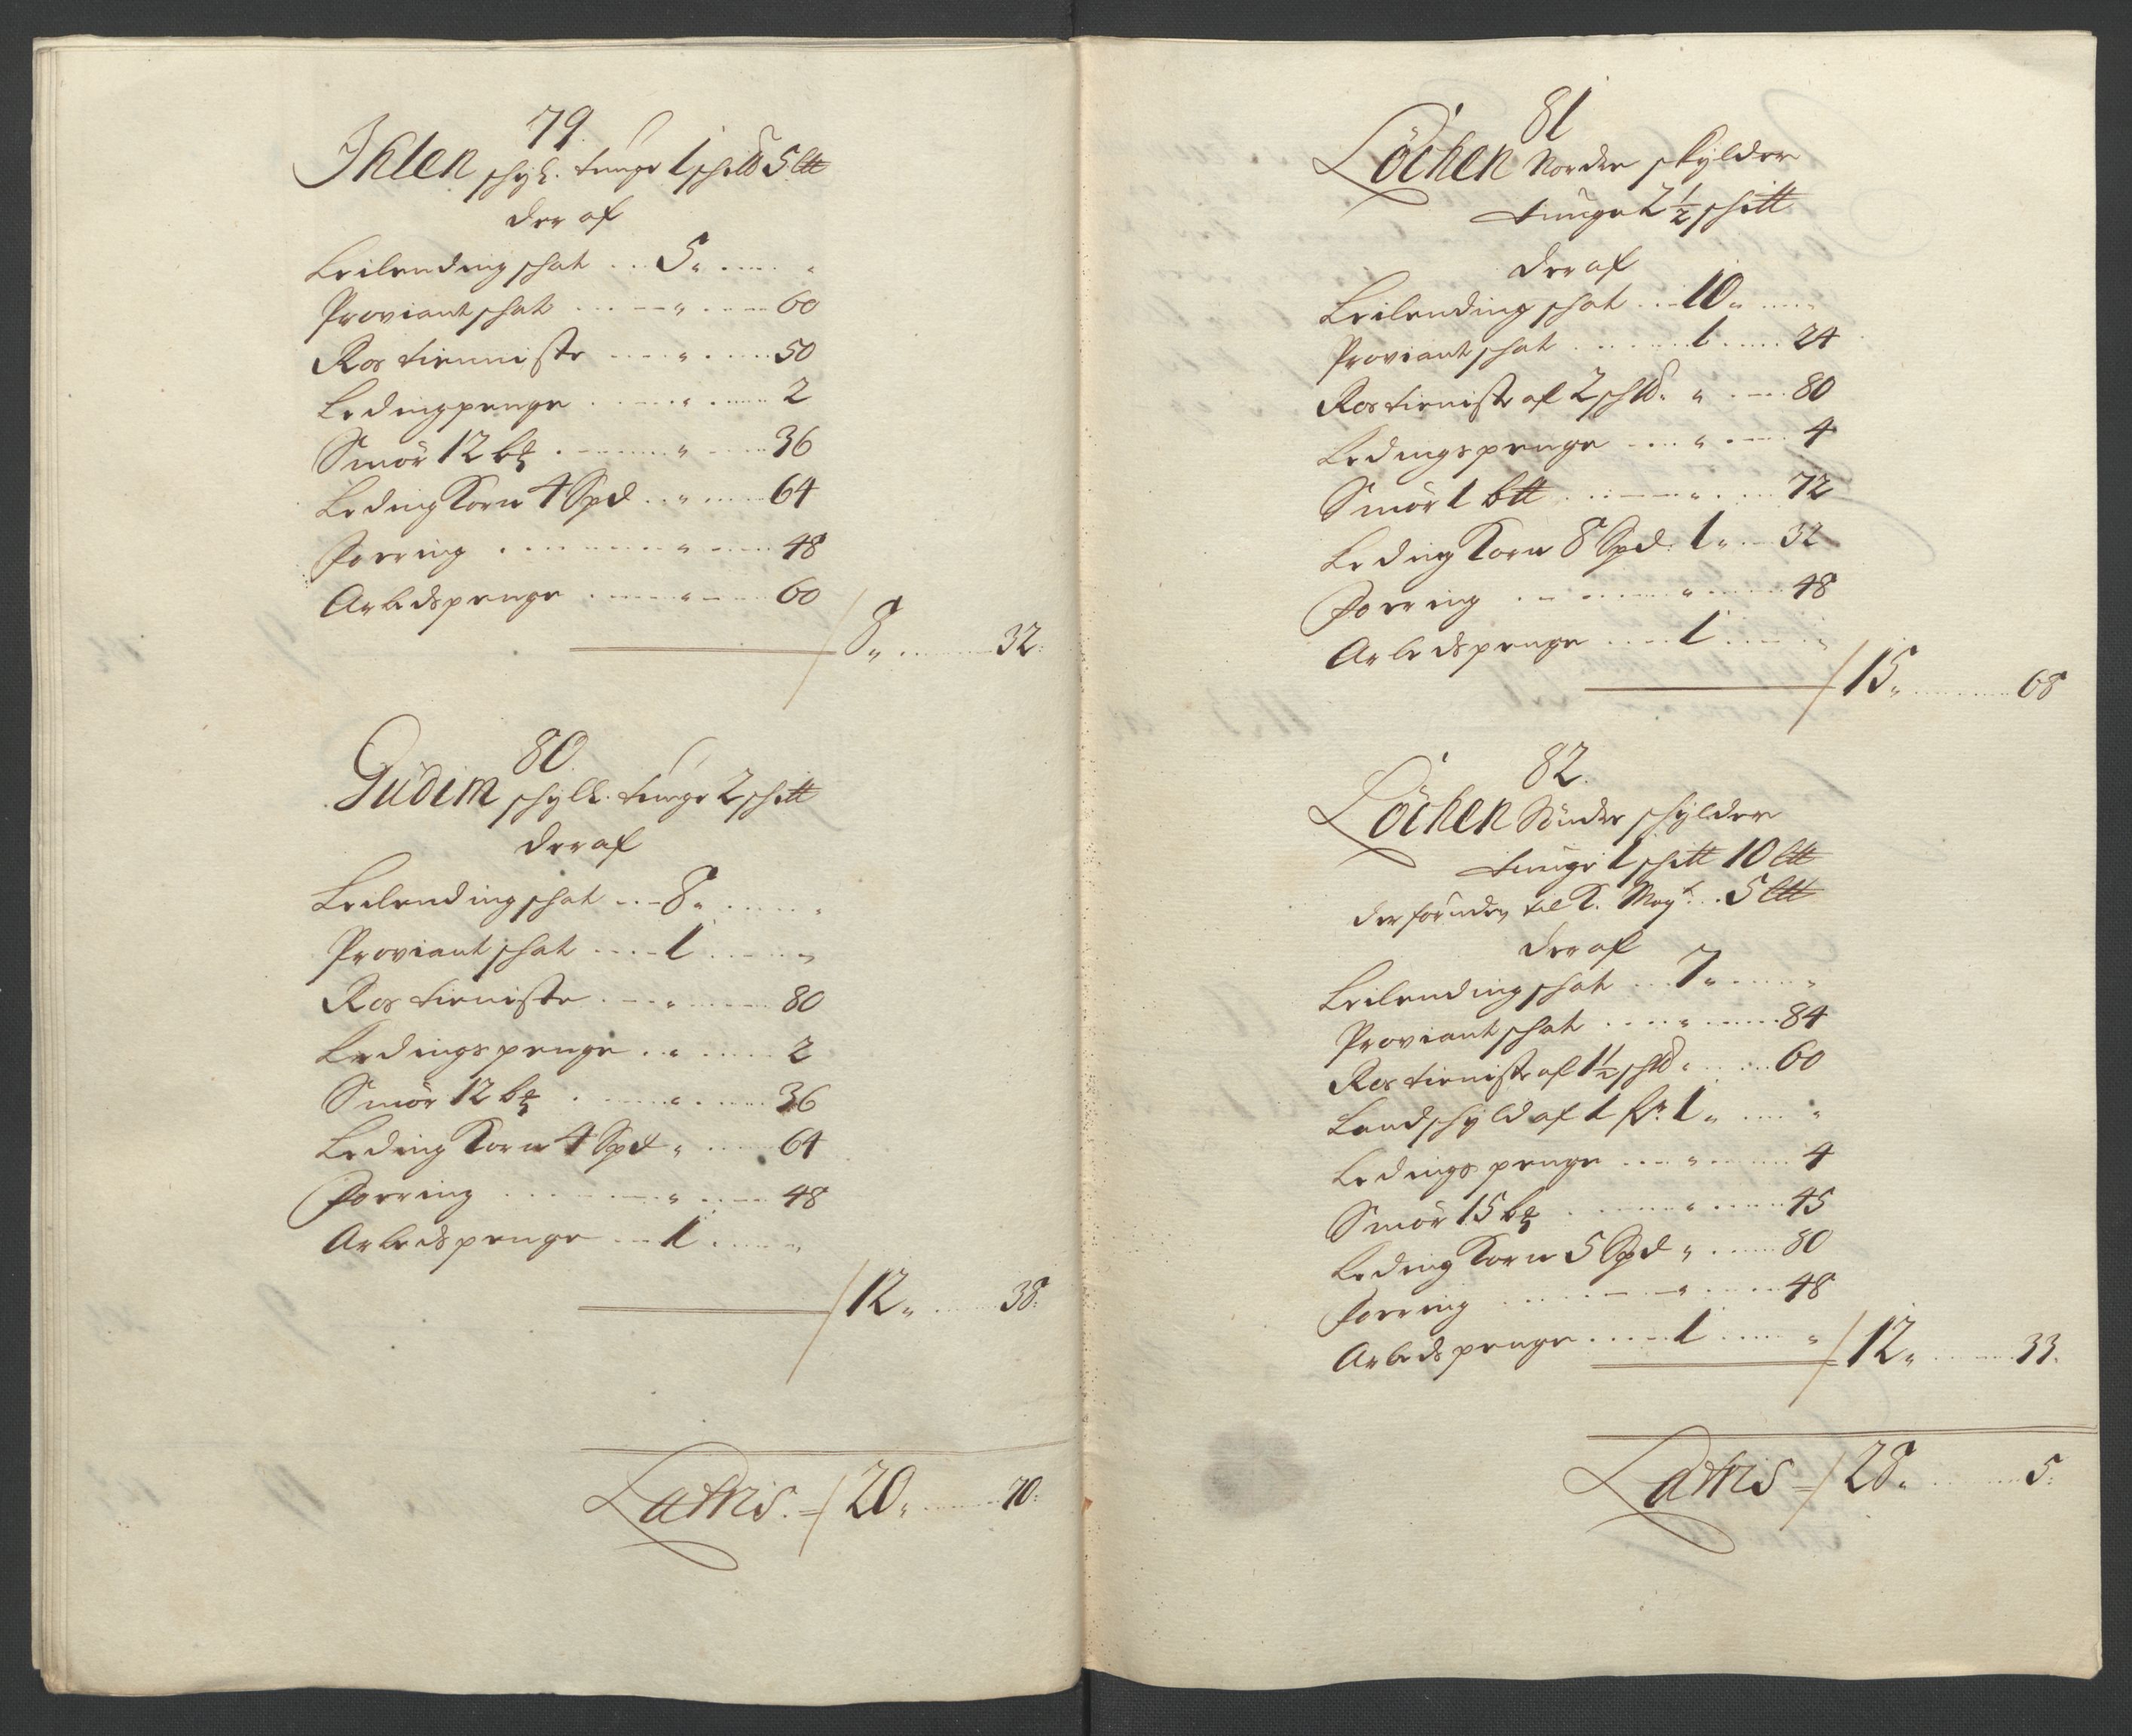 79.
Ihlen schyl. tunge 1 sch℔ 5 L℔
der af
Leilending schat ... 5 " ..... "
Proviant schat ..... " ..... 60
Ros tienniste ..... " ..... 50
Ledingpenge ..... " ..... 2
Smör 12 b ..... " ..... 36
Leding Korn 4 Spd .. " ..... 64
Foering ..... " ..... 48
Arbedspenge ..... " ..... 60
8 " ..... 32:
80.
Gudim schyll. tunge 2 sch℔
der af
Leilending schat ... 8 " ..... "
Proviant schat .... 1 ..... "
Ros tieniste ..... " ..... 80
Ledingspenge .. " ..... 2
Smör 12 b ..... " ..... 36
Leding Korn 4 Spd " ..... 64
Foering ..... " ..... 48
Arbedspenge ... 1 ..... "
12 " ..... 38:
Latris. = 20 " ..... 70:
81
Löchen Nordre skylder
tunge 2 1/2 sch℔
der af
Leilending schat ... 10 " ..... "
Proviant schat ..... 1 ..... 24
Ros tieniste af 2 sch℔ " " ..... 80
Ledingspenge .... " ..... 4
Smör 1 b℔ ..... " ..... 72
Leding Korn 8 Spd: 1 " ... 32
Foering ..... " ..... 48
Arbedspenge .... 1 ..... "
15 " ..... 68
82.
Löchen Söndre schylder
tunge 1 sch℔ 10 L℔
der foruden til K. May.t .. 5 L℔
der af
Leilending schat ... 7 " ..... "
Proviant schat .... " ..... 84
Ros tieniste af 1 1/2 sch℔ " ..... 60
Landschyld af 1 1 " ..... "
Ledings penge .... " ..... 4
Smör 15 b ..... " ..... 45
Leding Korn 5 Spd " ..... 80
Foering ..... " ..... 48
Arbeds penge ..... 1 ..... "
12 " ..... 33.
Latris = 28 " ..... 5: